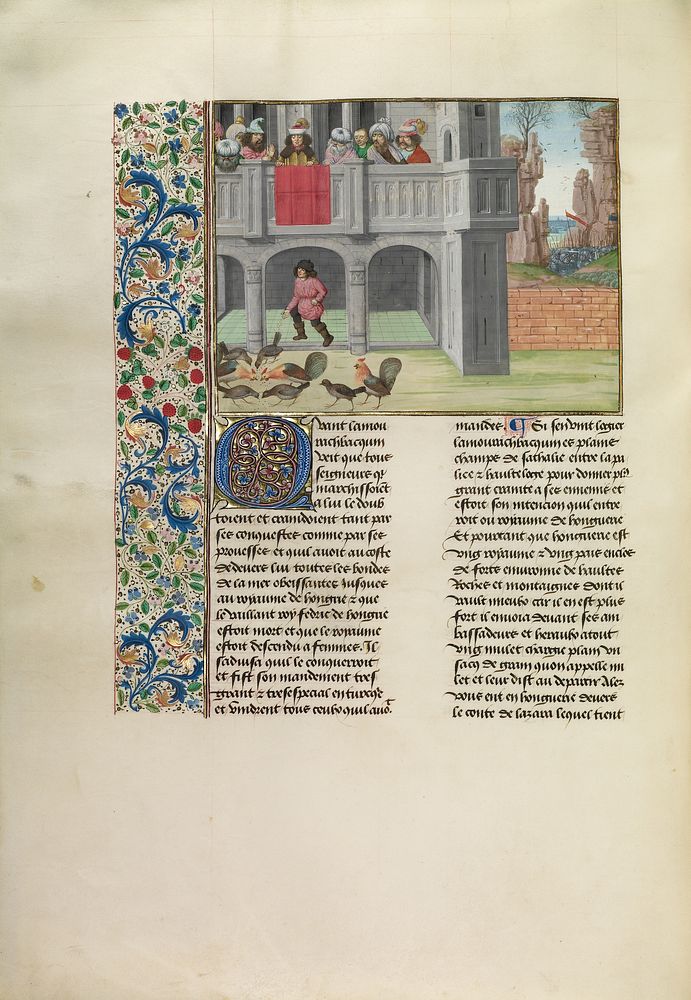 Quant lamou
rathbacquin
veit que tous
seigneurs qͥ
marchissoiēt
a lui le doub
toient et craindoient tant par
ses conquestes comme par ses
prouesses et quil auoit au coste
de deuers lui toutes les bondes
de la mer obeissantes Jusques
au royaume de hongrie & que
le vaillant roy fedric de hongrie
estoit mort et que le royaume
estoit descendu a femmes. Il
saduisa quil le conquerroit
et fist son mandement tres
grant & tres especial en turquie
et vindrent tous ceulx quil auoit
mandes ¶ Si sen vint logier
lamourathbacquin es plains
champs de sathalie entre la pa
lice & haulteloge pour donner plꝰ
grant crainte a ses ennemis et
estoit son intencion quil entre
roit ou royaume de honguerie
Et pourtant que honguerie est
vng royaume & vng pais enclos
de forte enuironne de haultes
Roches et montaignes dont il
vault mieulx car il en est plus
fort il enuoia deuant ses am
bassadeurs et heraulx atout
vng mulet charge plain vn
sacq de grain quon appelle mi
let et leur dist au departir Alez
vous ent en honguerie deuers
le conte de lazara lequel tient